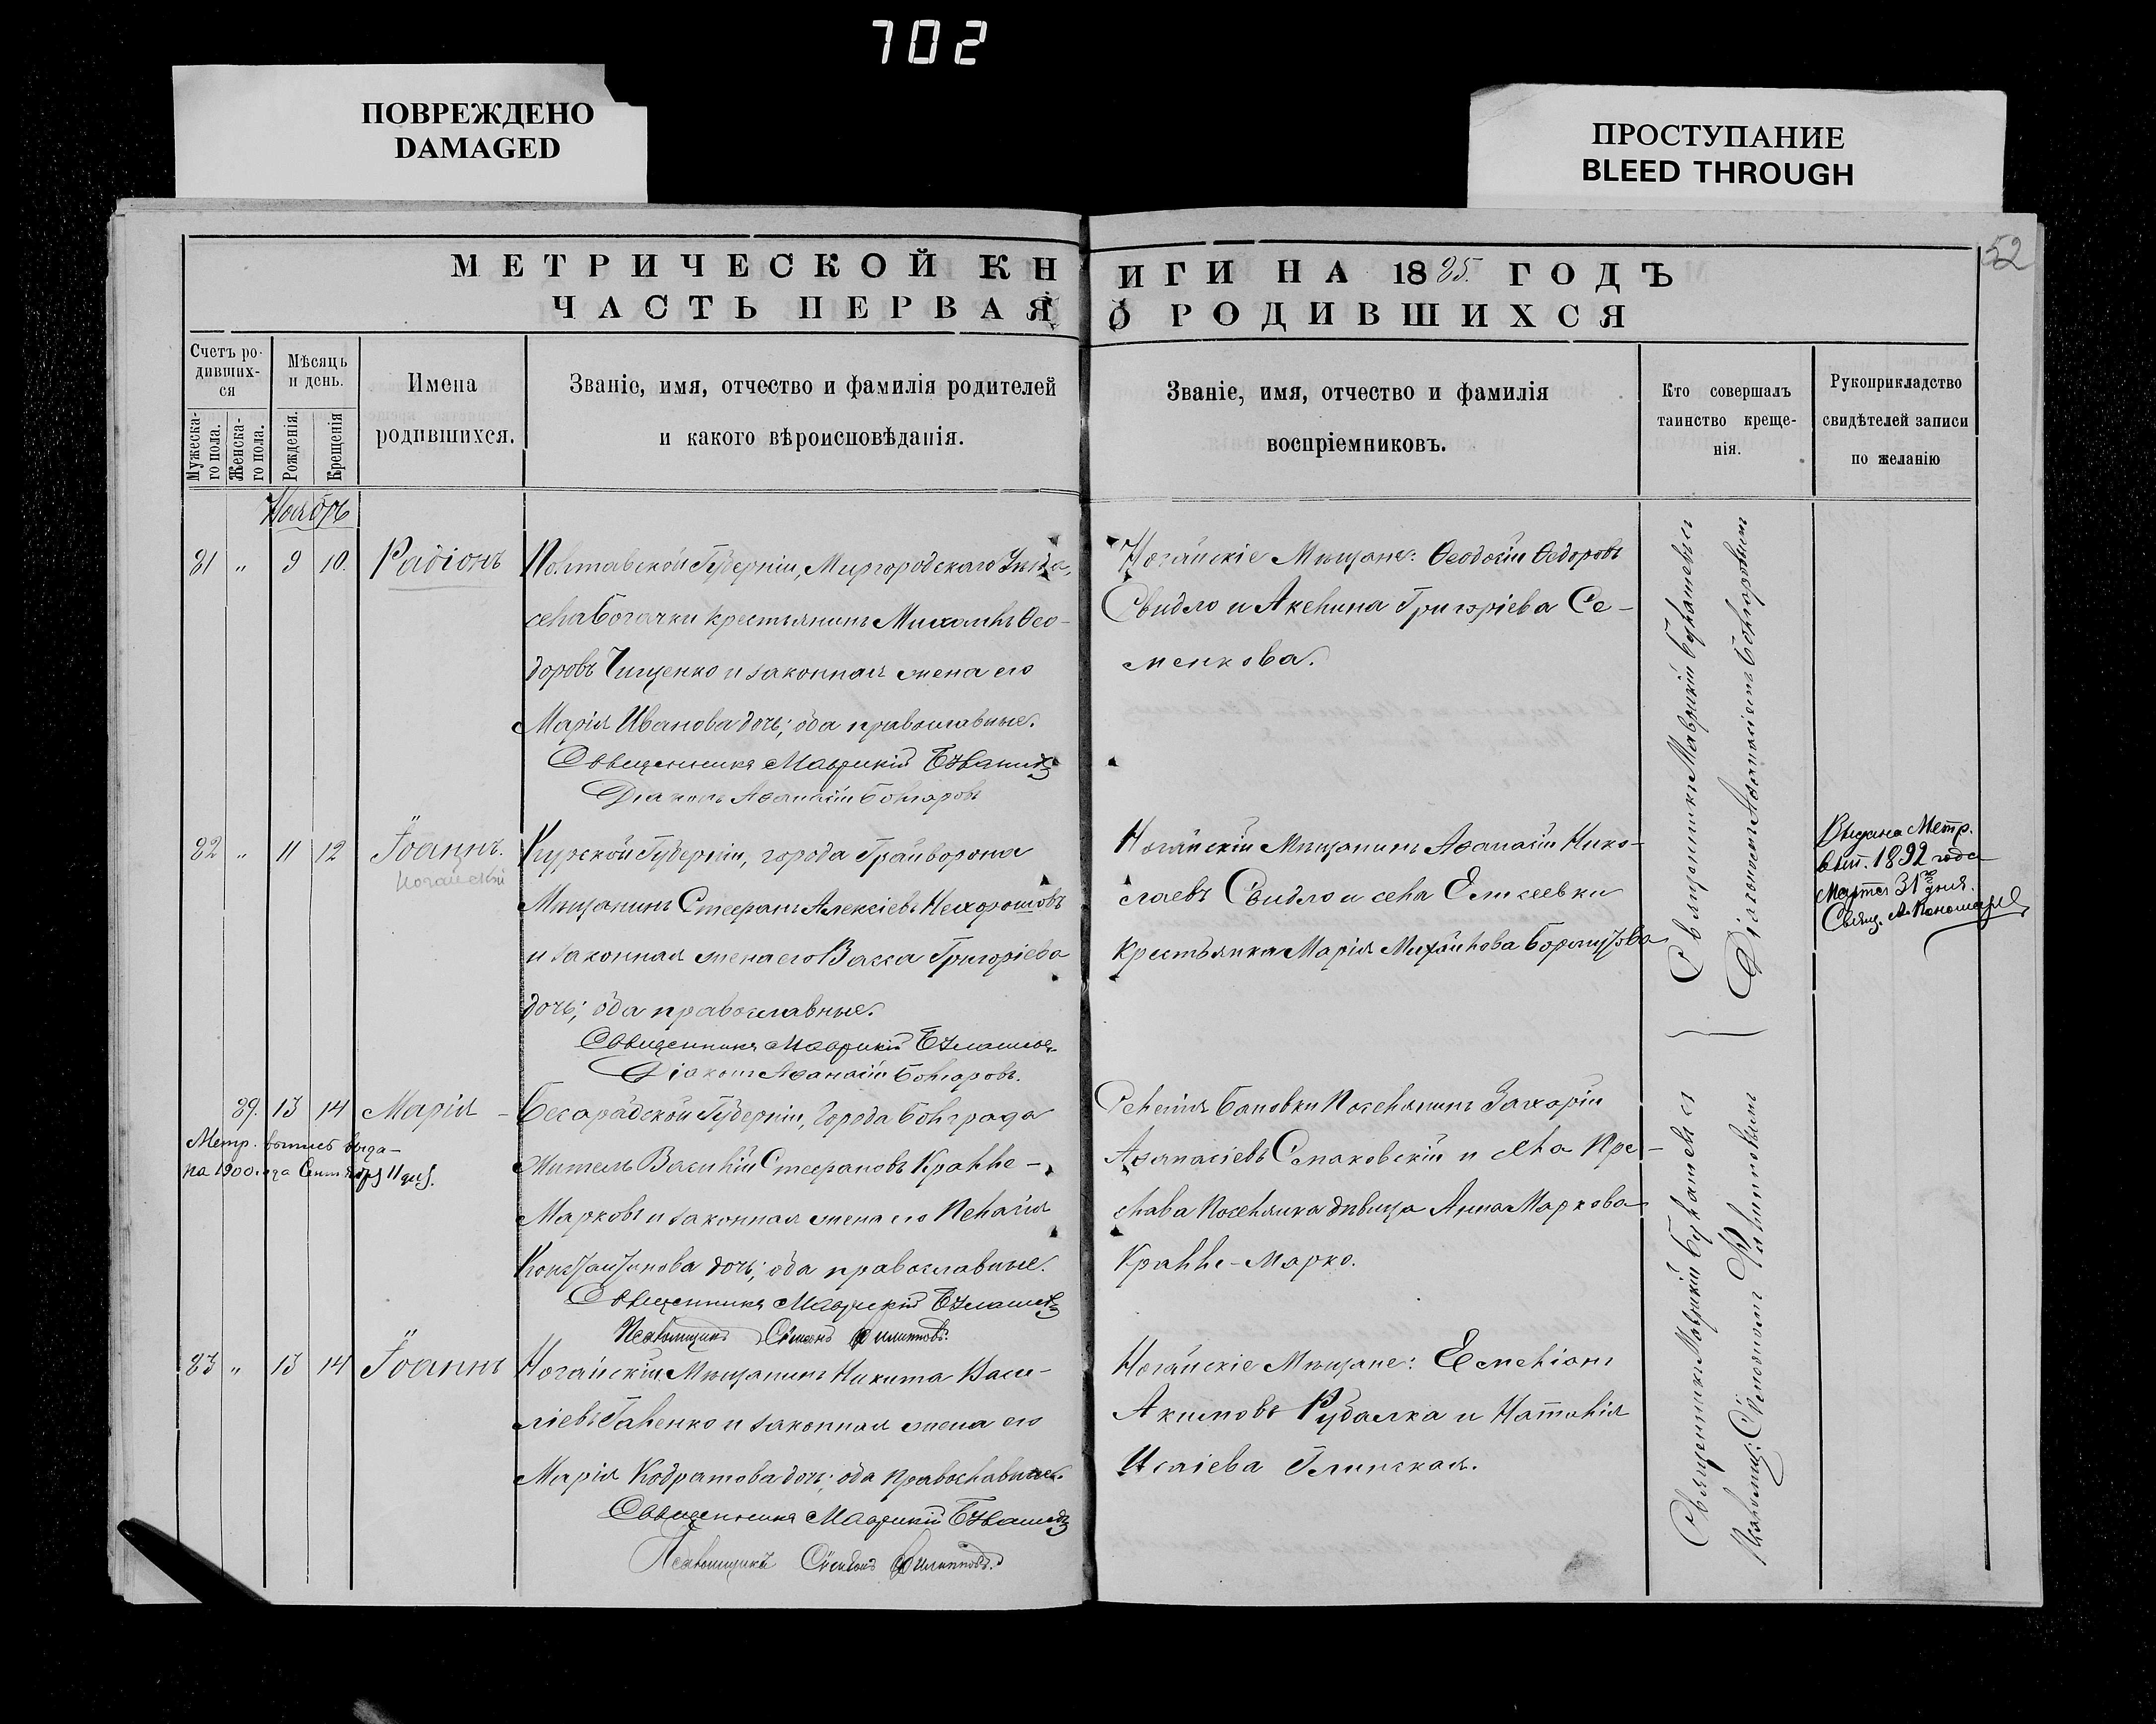 702
ПОВРЕЖДЕНО
DAMAGED
ПРОСТУПАНИЕ
BLEED THROUGH
52
МЕТРИЧЕСКОЙ КНИГИ НА 1885 ГОДЪ
ЧАСТЬ ПЕРВАЯ О РОДИВШИХСЯ
Счетъ ро-
дивших-
ся
Мужеска-
го пола.
Женска-
го пола.
Мѣсяцъ
и день.
Рожденія.
Крещенія
Имена
родившихся.
Званіе, имя, отчество и фамилія родителей
и какого вѣроисповѣданія.
Званіе, имя, отчество и фамилія
воспріемниковъ.
Кто совершалъ
таинство креще-
нія.
Рукоприкладство
свидѣтелей записи
по желанію
Ноябрь
81 " 9 10. Радіонъ
Полтавской Губерніи, Миргородскаго Уѣзда,
села Богачки крестьянинъ Михаилъ Ѳео-
доровъ Тищенко и законная жена его
Марія Иванова дочь; оба православные.
Священникъ Маврикій
Діаконъ Аѳанасій Болгаровъ
Ногайскіе Мѣщане: Ѳеодосій Ѳедоровъ
Свидло и Акелина Григоріева Се-
менкова.
82 " 11 12 Іоаннъ.
Ногайскій
Курской Губерніи, города Грайворона
Мѣщанинъ Стефанъ Алексіевъ Нехорошовъ
и законная жена его Васса Григоріева
дочь; оба православные.
Священникъ Маврикій
Діаконъ Аѳанасій Болгаровъ.
Ногайскій Мѣщанинъ Аѳанасій Нико-
лаевъ Свидло и села Елисеевки
крестьянка Марія Михайлова
Священникъ Маврикій
Діакономъ Аѳанасіемъ Болгаровымъ
Выдана Метр.
вып. 1892 года
Марта 31го дня.
Свящ. А. Пономарев
89. 13 14 Марія -
Метр. выпись выда-
на 1900 года Сентября 11 дня.
Бесарабской Губерніи, города Болграда
Житель Василій Стефановъ Кралле-
Марковъ и законная жена его Пелагія
Константинова дочь; оба православные.
Священникъ Маврикій
Псаломщикъ Симеонъ Филипповъ.
Селенія Бановки Поселянинъ Захарій
Аѳанасіевъ Симаковскій и села Пре-
слава Поселянка дѣвица Анна Маркова
Кралле-Марко.
83 " 13 14 Іоаннъ
Ногайскій Мѣщанинъ Никита Васи-
ліевъ Галенко и законная жена его
Марія Кодратова дочь; оба православные.
Священникъ Маврикій
Псаломщикъ Симеонъ Филипповъ.
Ногайскіе Мѣщане: Емеліанъ
Акимовъ Рубалка и Наталія
Исаіева Глинская.
Священникъ Маврикій
Псаломщ: Симеономъ Филипповымъ